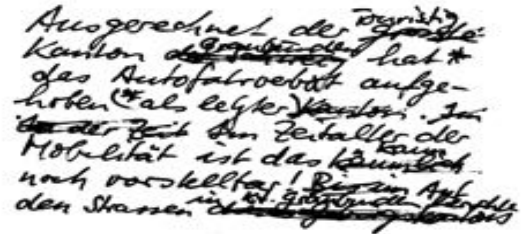 Ausgerechnet der touristig grösste
Kanton Graubünden hat*
das Autofahrverbot aufge-
hoben (*als letzter Kanton). Im
in der Zeit Im Zeitalter der
Mobilität ist das kaum
noch vorstellbar! Bis im
den Strassen in Kt. Graubünden